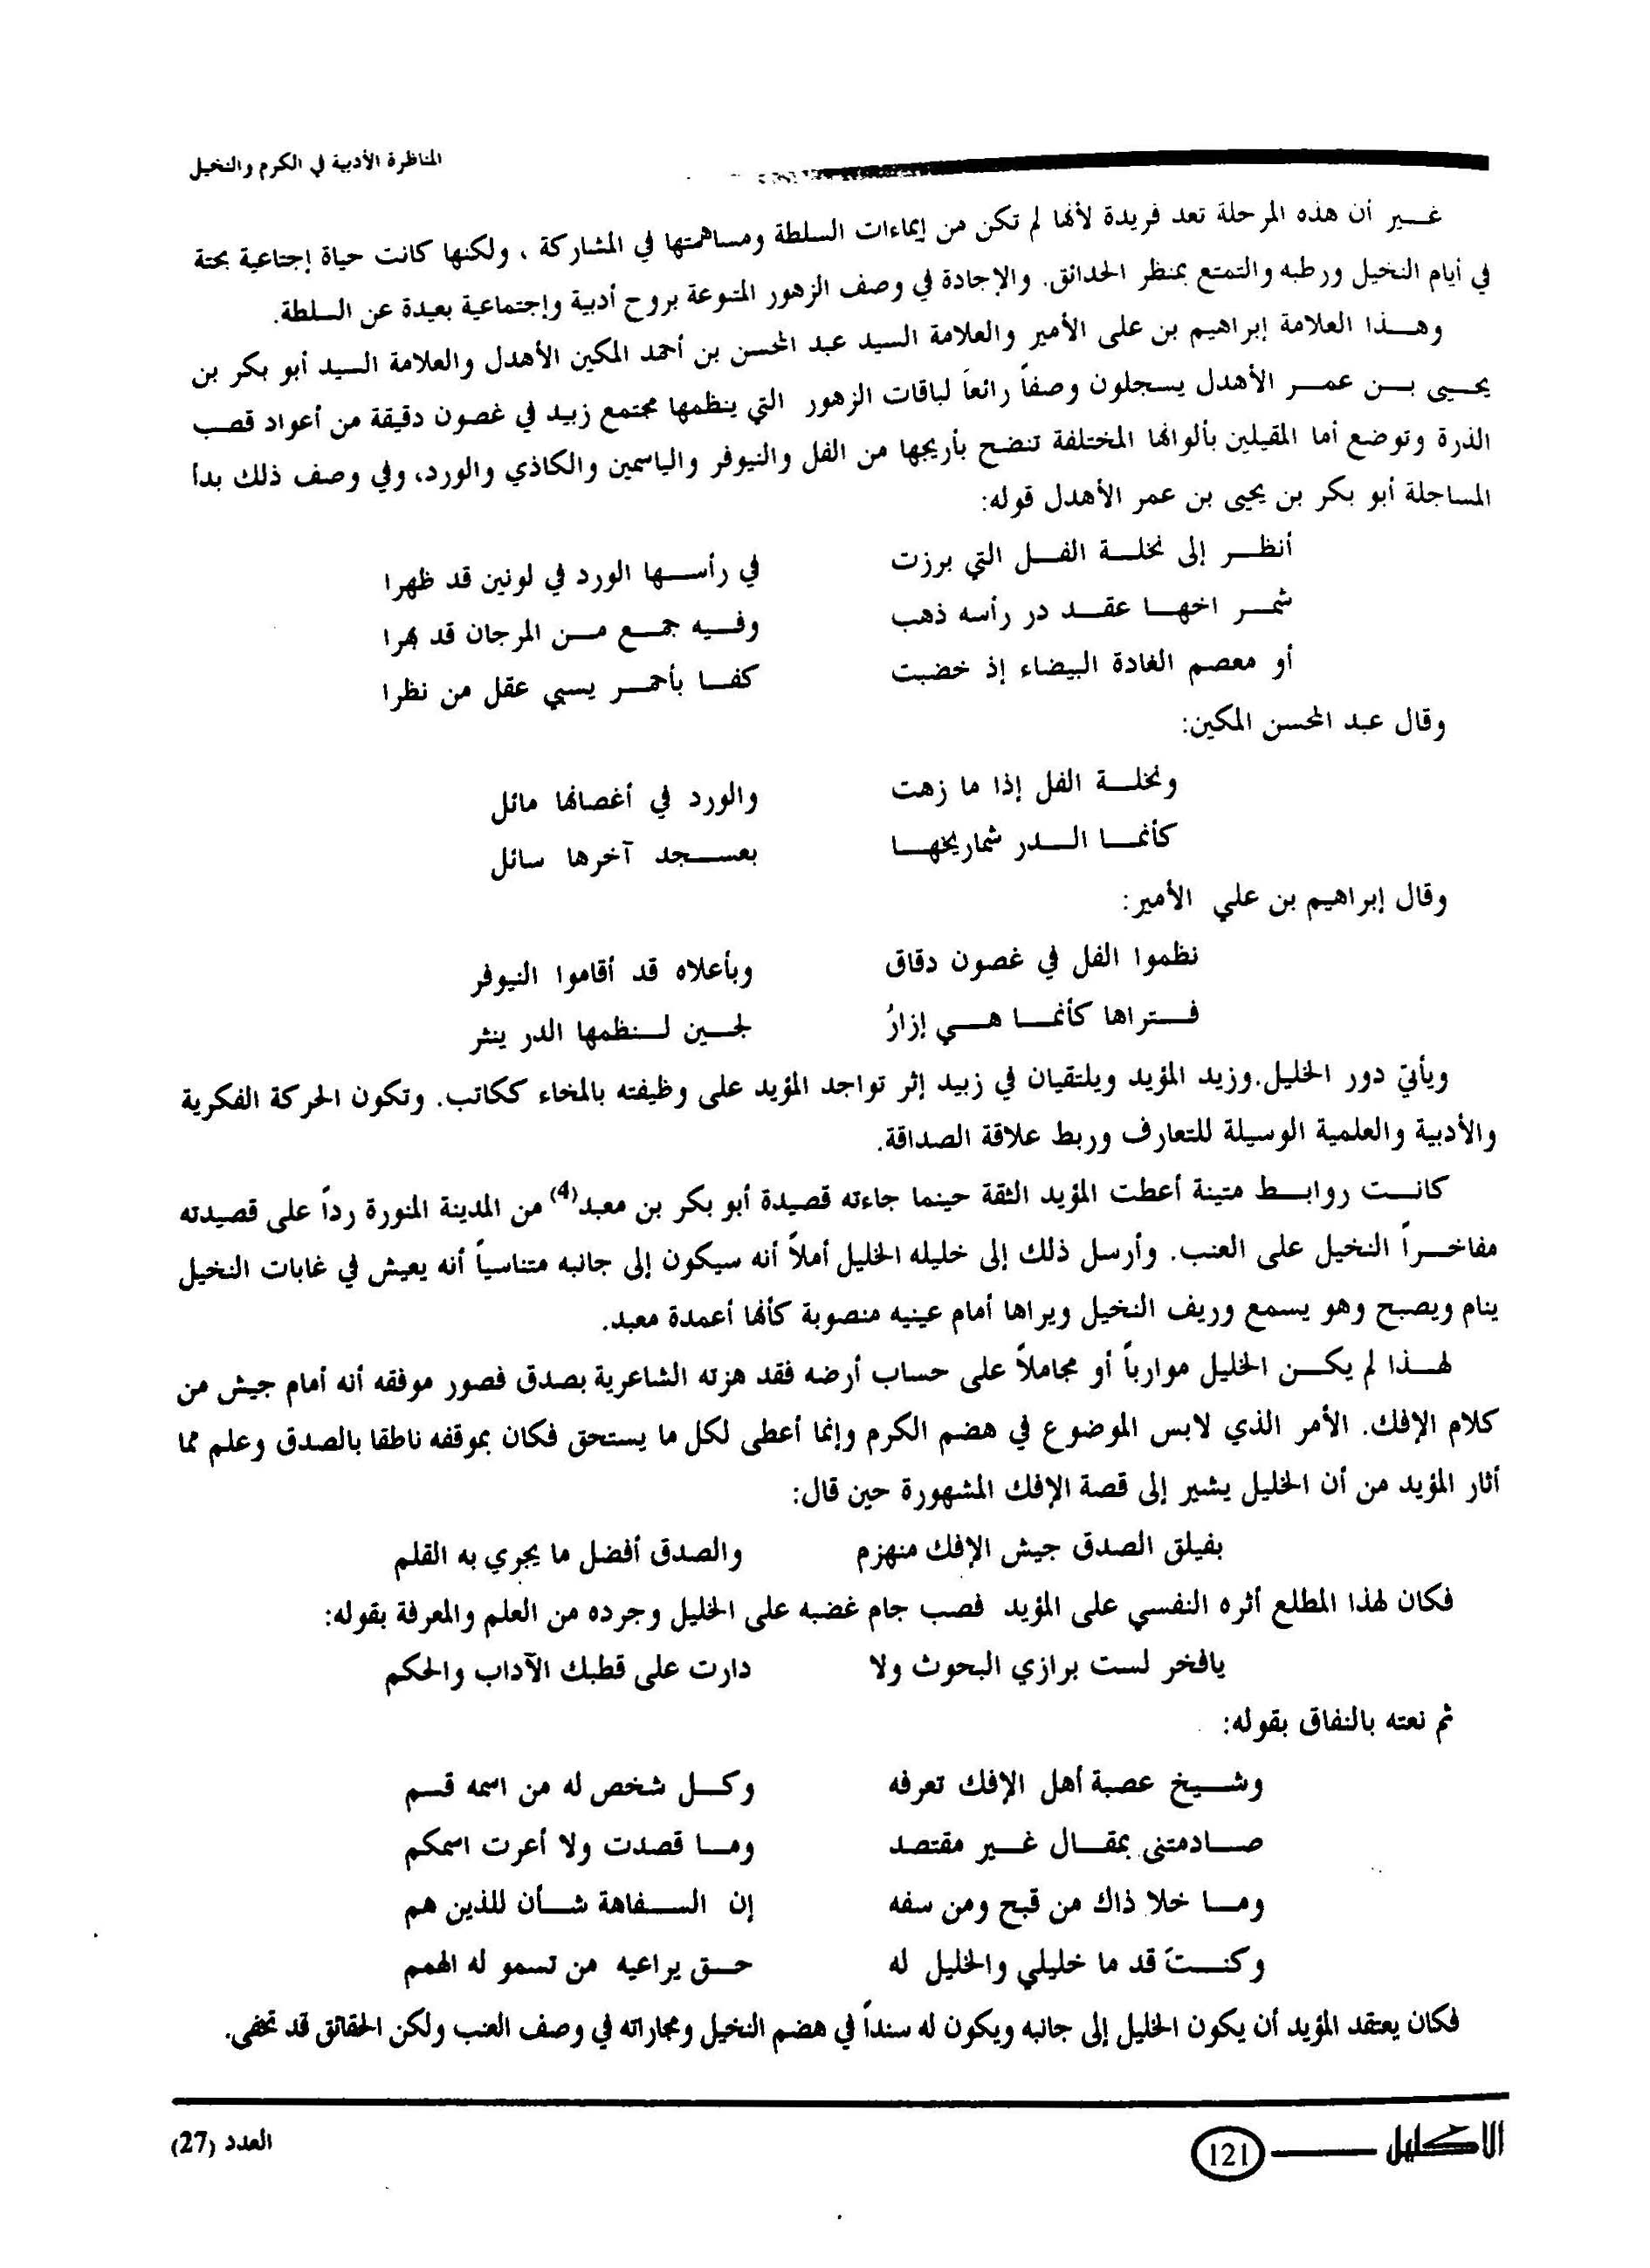 المناظرة الأدبية في الكرم والنخيل
غـــير أن هذه المرحلة تعد فريدة لأنها لم تكن من إيماءات السلطة ومساهمتها في المشاركة ، ولكنها كانت حياة إجتاعية بحتة
في أيام النخيل ورطبه والتمتع بمنظر الحدائق. والإجادة في وصف الزهور المتنوعة بروح أدبية وإجتماعية بعيدة عن السلطة.
وهـــذا العلامة إبراهيم بن على الأمير والعلامة السيد عبد المحسن بن أحمد المكين الأهدل والعلامة السيد أبو بكر بن
يحـــيى بـــن عمـــر الأهدل يسجلون وصفاً رائعاً لباقات الزهور التي ينظمها مجتمع زبيد في غصون دقيقة من أعواد قصب
الذرة وتوضع أما المقيلين بألوانها المختلفة تنضح بأريجها من الفل والنيوفر والياسمين والكاذي والورد، وفي وصف ذلك بدأ
المساجلة أبو بكر بن يحيى بن عمر الأهدل قوله:
أنظـــر إلى نخلـــة الفـــل التي برزت في رأســـها الورد في لونين قد ظهرا
شمـــر اخهـــا عقـــد در رأسه ذهب وفـــيه جمـــع مـــن المرجان قد بهرا
أو معصم الغادة البيضاء إذ خضبت كفـــا بأحمـــر يسبي عقل من نظرا
وقال عبد المحسن المكين:
ونخلـــة الفل إذا ما زهت والورد في أغصانها مائل
كأنمـــا الـــدر شماريخهـــا بعســـجد آخرها سائل
وقال إبراهيم بن علي الأمير:
نظموا الفل في غصون دقاق وبأعلاه قد أقاموا النيوفر
فـــتراها كأنمـــا هـــي إزارُ لجـــين لـــنظمها الدر ينثر
ويأتي دور الخليل.وزيد المؤيد ويلتقيان في زبيد إثر تواجد المؤيد على وظيفته بالمخاء ككاتب. وتكون الحركة الفكرية
والأدبية والعلمية الوسيلة للتعارف وربط علاقة الصداقة.
كانـــت روابـــط متينة أعطت المؤيد الثقة حينما جاءته قصيدة أبو بكر بن معبد(4) من المدينة المنورة رداً على قصيدته
مفاخـــراً النخيل على العنب. وأرسل ذلك إلى خليله الخليل أملاً أنه سيكون إلى جانبه متناسياً أنه يعيش في غابات النخيل
ينام ويصبح وهو يسمع وريف النخيل ويراها أمام عينيه منصوبة كأنها أعمدة معبد.
لهـــذا لم يكـــن الخليل موارباً أو مجاملاً على حساب أرضه فقد هزته الشاعرية بصدق فصور موفقه أنه أمام جيش من
كلام الإفك. الأمر الذي لابس الموضوع في هضم الكرم وإنما أعطى لكل ما يستحق فكان بموقفه ناطقا بالصدق وعلم مما
أثار المؤيد من أن الخليل يشير إلى قصة الإفك المشهورة حين قال:
بفيلق الصدق جيش الإفك منهزم والصدق أفضل ما يجري به القلم
فكان لهذا المطلع أثره النفسي على المؤيد فصب جام غضبه على الخليل وجرده من العلم والمعرفة بقوله:
يافخر لست برازي البحوث ولا دارت على قطبك الآداب والحكم
ثم نعته بالنفاق بقوله:
وشـــيخ عصبة أهل الإفك تعرفه وكـــل شخص له من اسمه قسم
صـــادمتنى بمقـــال غـــير مقتصد ومـــا قصدت ولا أعرت اسمكم
ومـــا خلا ذاك من قبح ومن سفه إن الســـفاهة شـــأن للذين هم
وكنـــتَ قد ما خليلي والخليل له حـــق يراعيه من تسمو له الهمم
فكان يعتقد المؤيد أن يكون الخليل إلى جانبه ويكون له سنداً في هضم النخيل ومجاراته في وصف العنب ولكن الحقائق قد تخفى.
الاكليل 121 العدد (27)